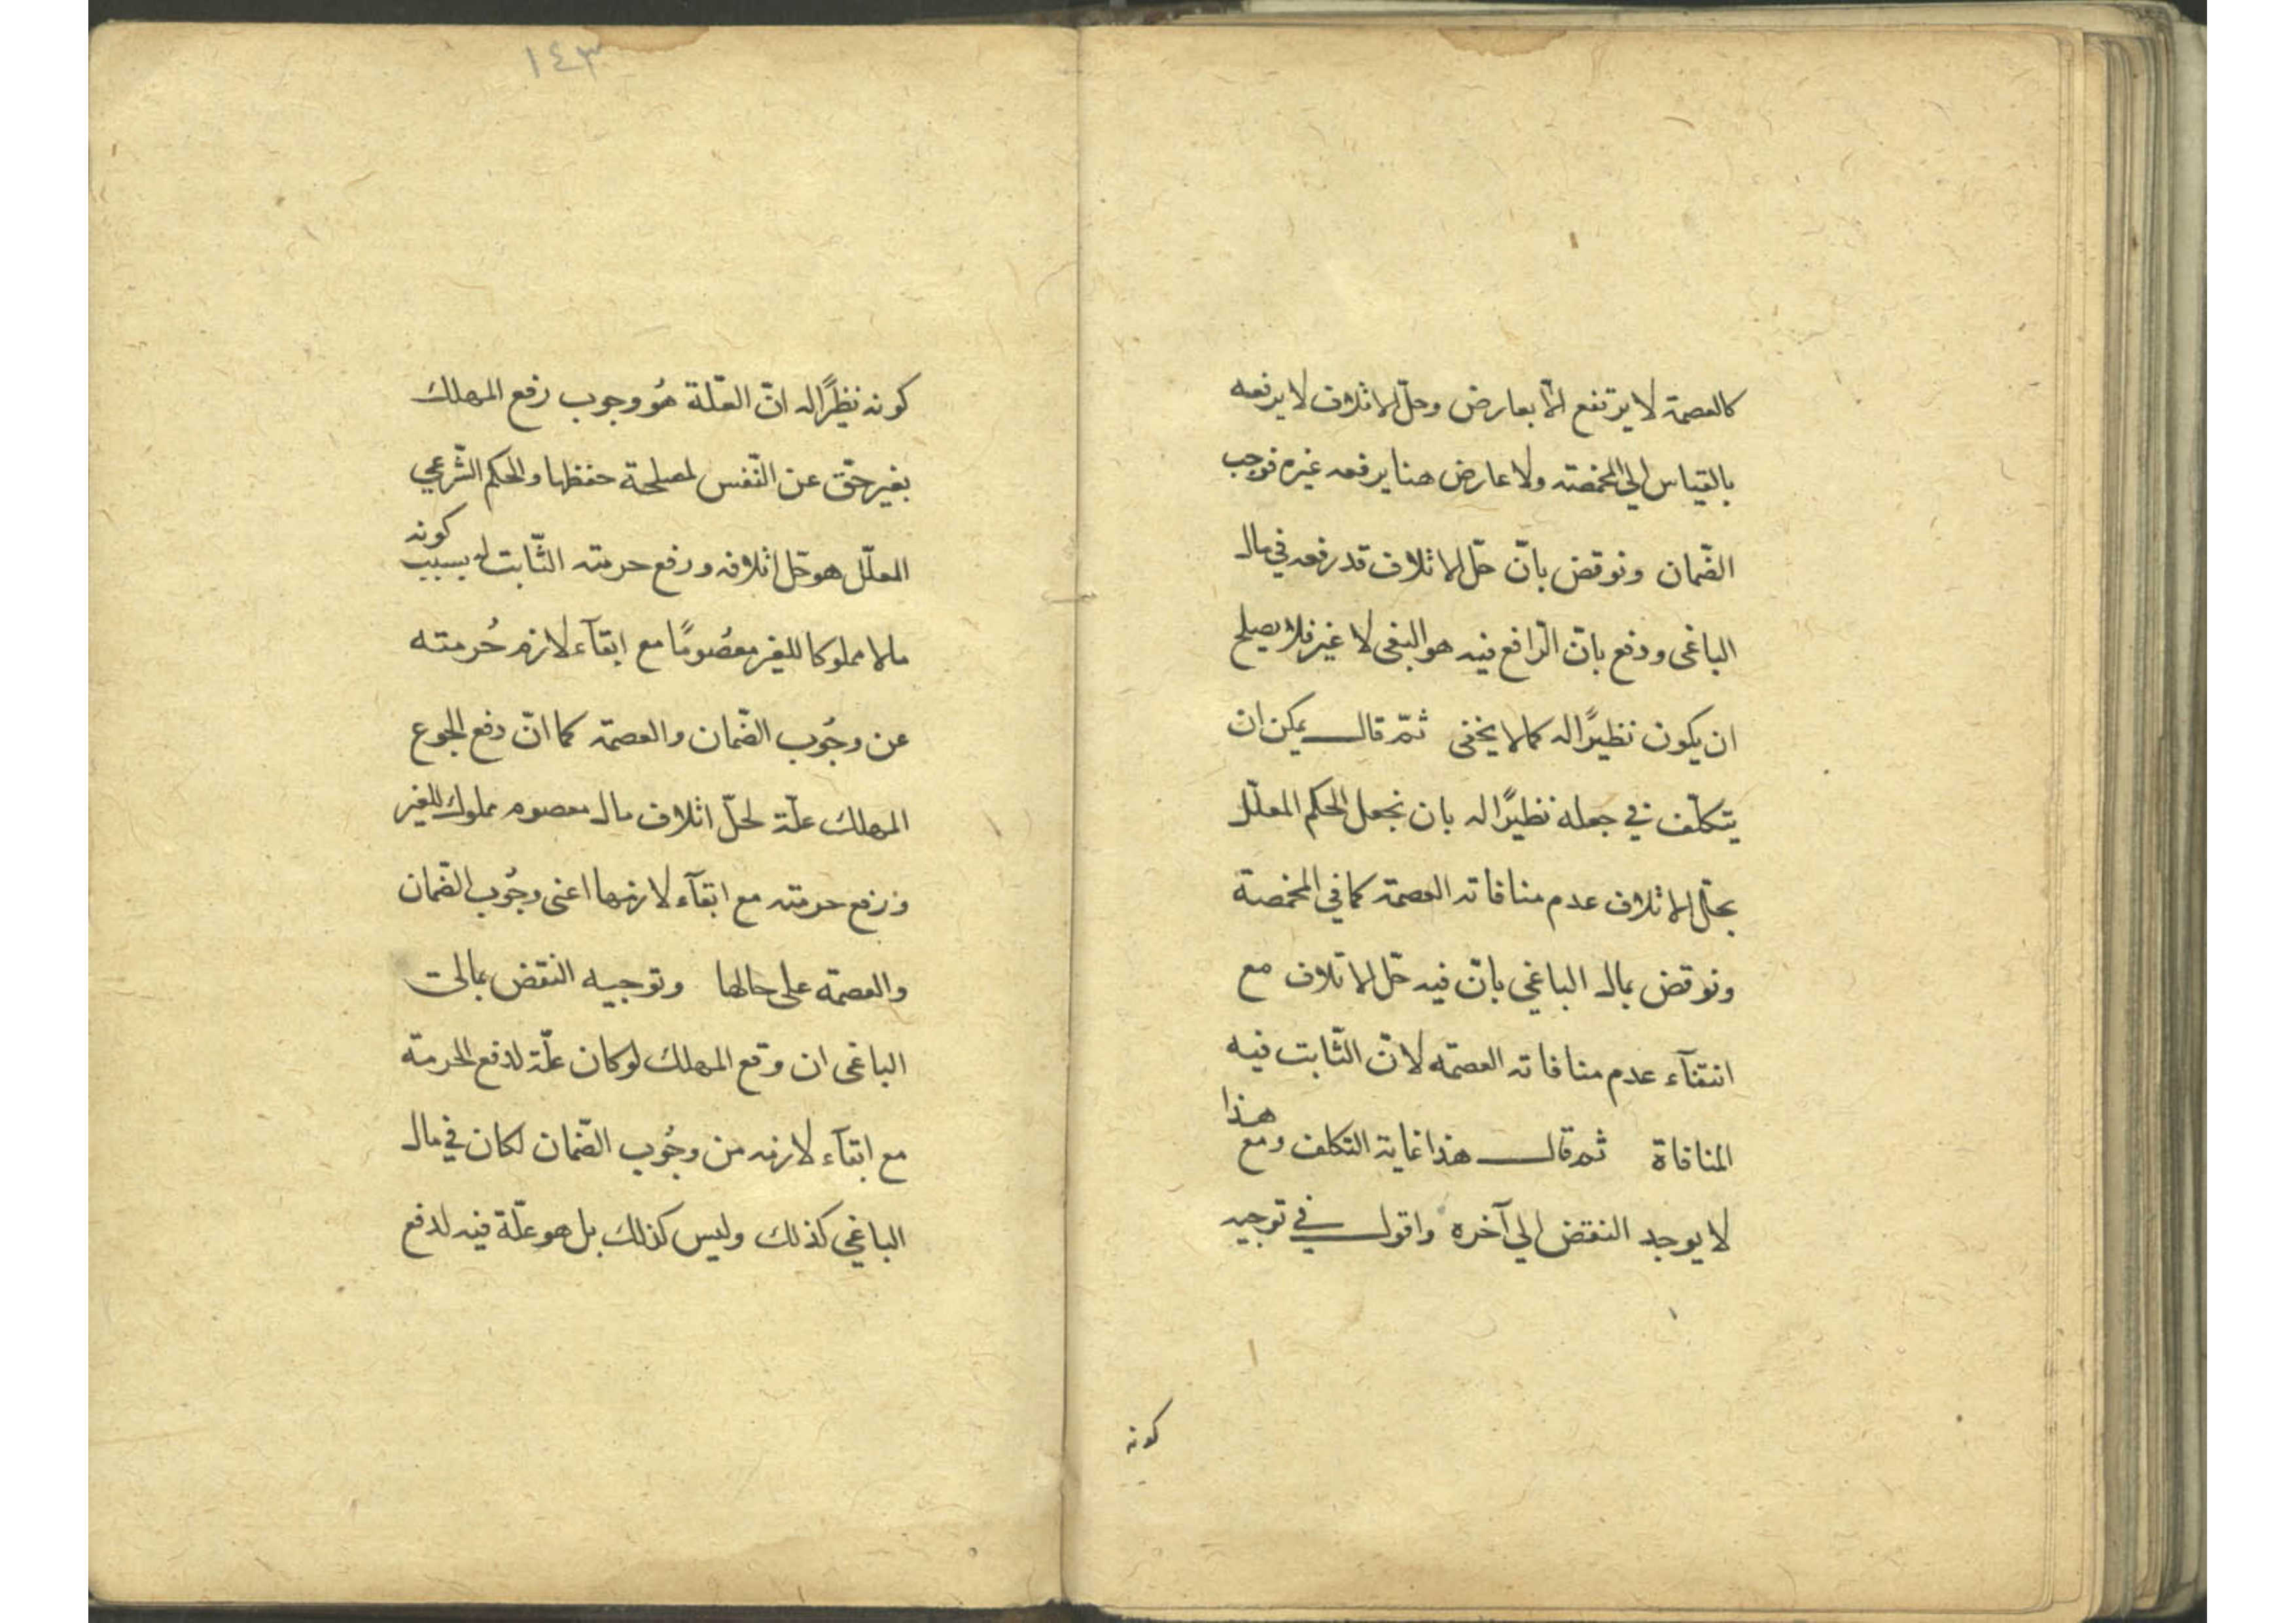 كالعصمة لا يرتفع الّا بعارض وحلّ الاتلاف لا يرفعه
بالقياس الي المخمصة ولا عارض هنا يرفعه غيره فوجب
الضّمان ونوقض بانّ حلّ الاتلاف قد رفعه في مال
الباغى ودفع بانّ الرّافع فيه هو البغى لا غير فلا يصلح
ان يكون نظيرًا له كما لا يخفى ثمّ قال يمكن ان
يتكلّف في جعله نظيرًا له بان نجعل الحكم المعلّل
بحلّ الاتلاف عدم منافاته العصمة كما في المخمصة
ونوقض بمال الباغي بانّ فيه حلّ الاتلاف مع
انتفآء عدم منافاته العصمة لانّ الثّابت فيه
المنافاة ثم قال هذا غاية التكلف ومع هذا
لا يوجد النقض الي آخره واقول في توجيه
كونه
١٤٣
كونه نظيرًا له انّ العلّة هُو وجوب رفع المهلك
بغير حقّ عن النّفس لمصلحة حفظها والحكم الشّرعي
المعلّل هو حلّ اتلافه ورفع حرمته الثّابت له بسبب كونه
مالا مملوكا للغير معصُومًا مع ابقآء لازم حُرمته
عن وجُوب الضّمان والعصمة كما انّ دفع الجوع
المهلك علّة لحلّ اتلاف مال معصوم مملوك للغير
ورفع حرمته مع ابقآء لازمها اعنى وجُوب الضّمان
والعصمة على حالها وتوجيه النقض بمال
الباغى ان وقع المهلك لو كان علّة لدفع الحرمة
مع ابقآء لازمه من وجُوب الضّمان لكان في مال
الباغي كذلك وليس كذلك بل هو علّة فيه لدفع